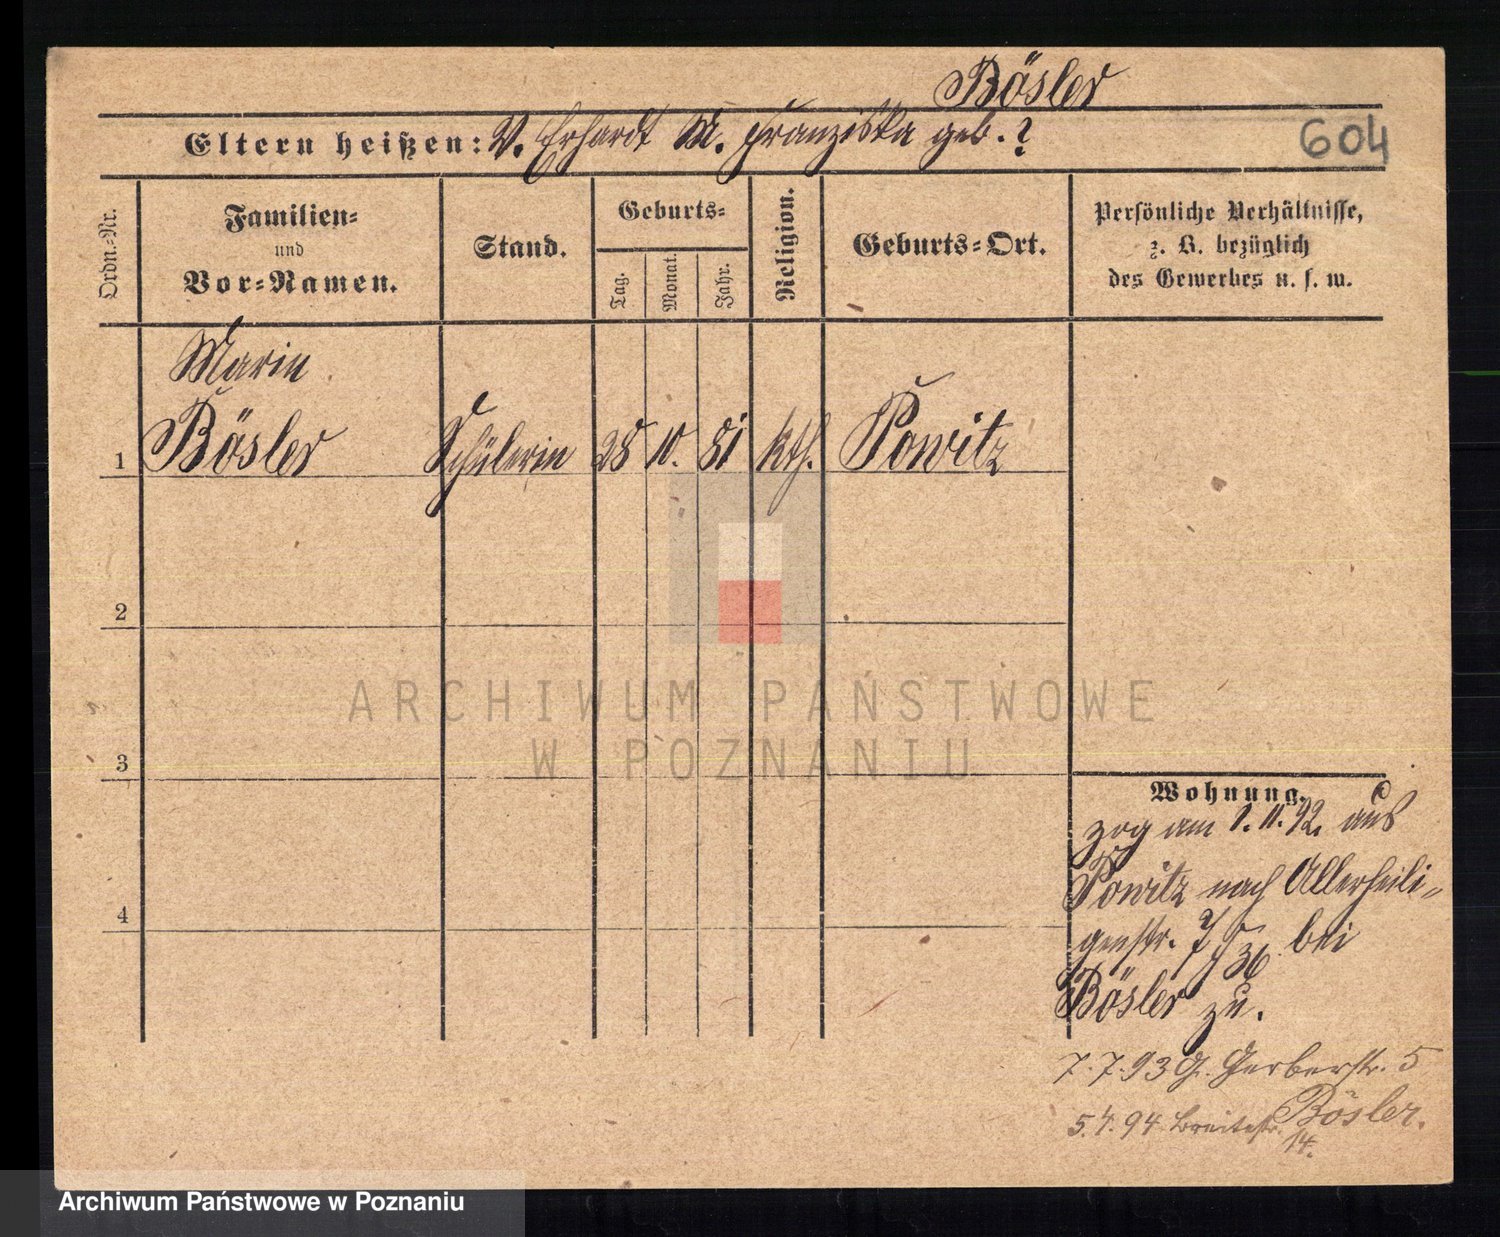 Bösler
Eltern heißen: V. Erhardt M. Franziska geb. ?
604
Ordn.=Nr.
Familien=
und
Vor=Namen.
Stand.
Geburts=
Tag.
Monat.
Jahr.
Religion.
Geburts=Ort.
Persönliche Verhältnisse,
z. B. bezüglich
des Gewerbes u. s. w.
Marie
1 Bösler Schülerin 28 10. 81 kth. Powitz
2
3
4
ARCHIWUM PAŃSTWOWE
W POZNANIU
Wohnung.
zog am 1. 11. 92. aus
Powitz nach Allerheili=
genstr. bei
Bösler zu.
7. 7. 93 G. Gerberstr. 5
Bösler.
5. 4. 94 Breitestr. 14.
Archiwum Państwowe w Poznaniu